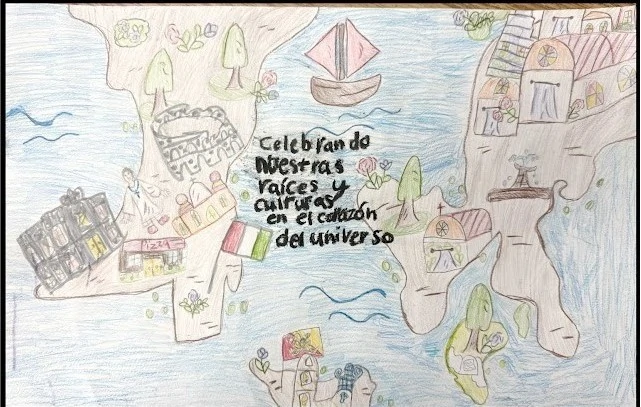 Celebrando
nuestras
raíces y
culturas
en el corazón
del universo
PIZZA